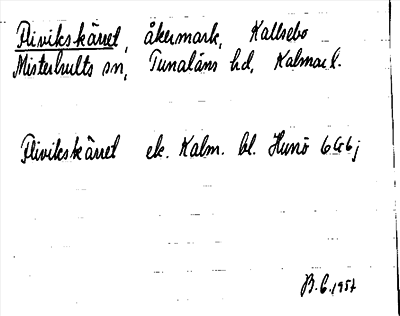 Flivikskärret, åkermark, Kallsebo
Misterhults sn, Tunaläns hd, Kalmar l.
Flivikskärret ek. Kalm. bl. Hunö 6G6j
B.E. 1957